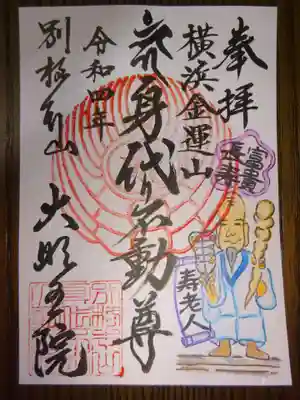 奉拝
横浜金運山
身代り不動尊
令和四年
別格本山 大明王院
富貴
長寿
寿老人